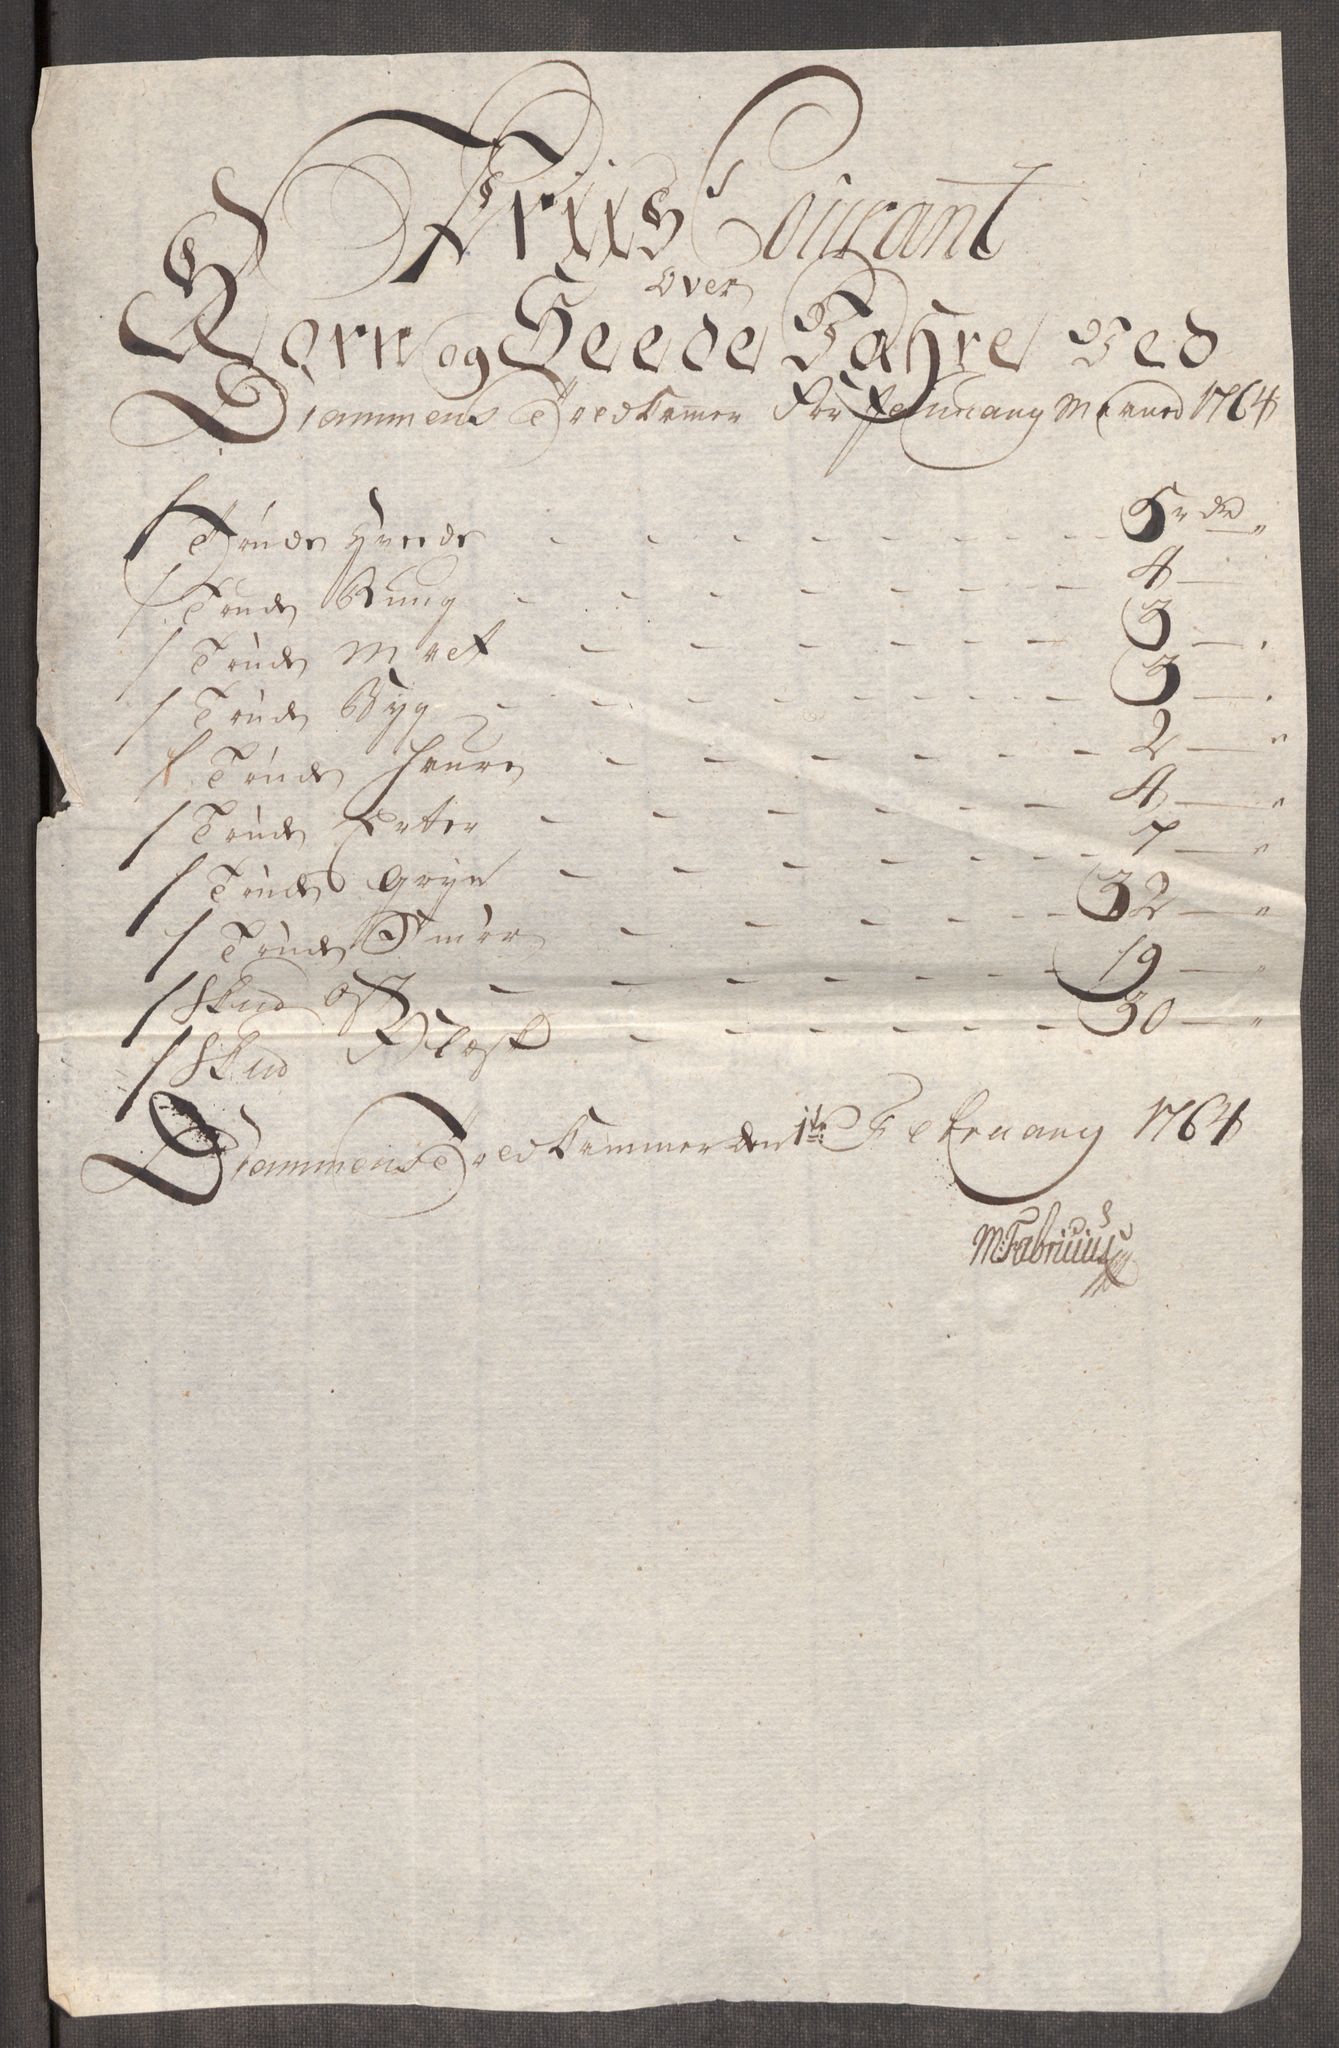 Priis Courant
over
Korn og Feede Vahre ved
Drammens Bredkamer For februarij Maaned 1764
1 Tønde Hvede - - - - - - 5 rdr "
1 Tønde Rug - - - - - - 4 —
1 Tønde Malt - - - - - - 3 — "
1 Tønde Byg - - - - - - 3 — "
1 Tønde Haure - - - - - 2 — "
1 Tønde Erter - - - - - 4 — "
1 Tønde Gryn - - - - - 7 — "
1 Tønde Smør - - - - - 32 — "
1 Skud Ost - - - - - 19 — "
1 Skud - - - - - 30 — "
den 1te February 1764
MFabritius